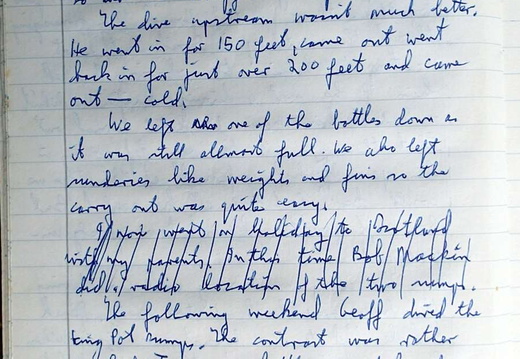 The dive upstream wasn't much better.
He went in for 150 feet, came out went
back in for just over 200 feet and came
out — cold.
We left one of the bottles down as
it was still allmost full. We also left
sunderies like weights and fins so the
carry out was quite easy.
I now went on holliday to Scotland
with my parents. In this time Bob Mackin
did a radio location of the two sumps.
The following weekend Geoff dived the
King Pot sumps. The contrast was rather